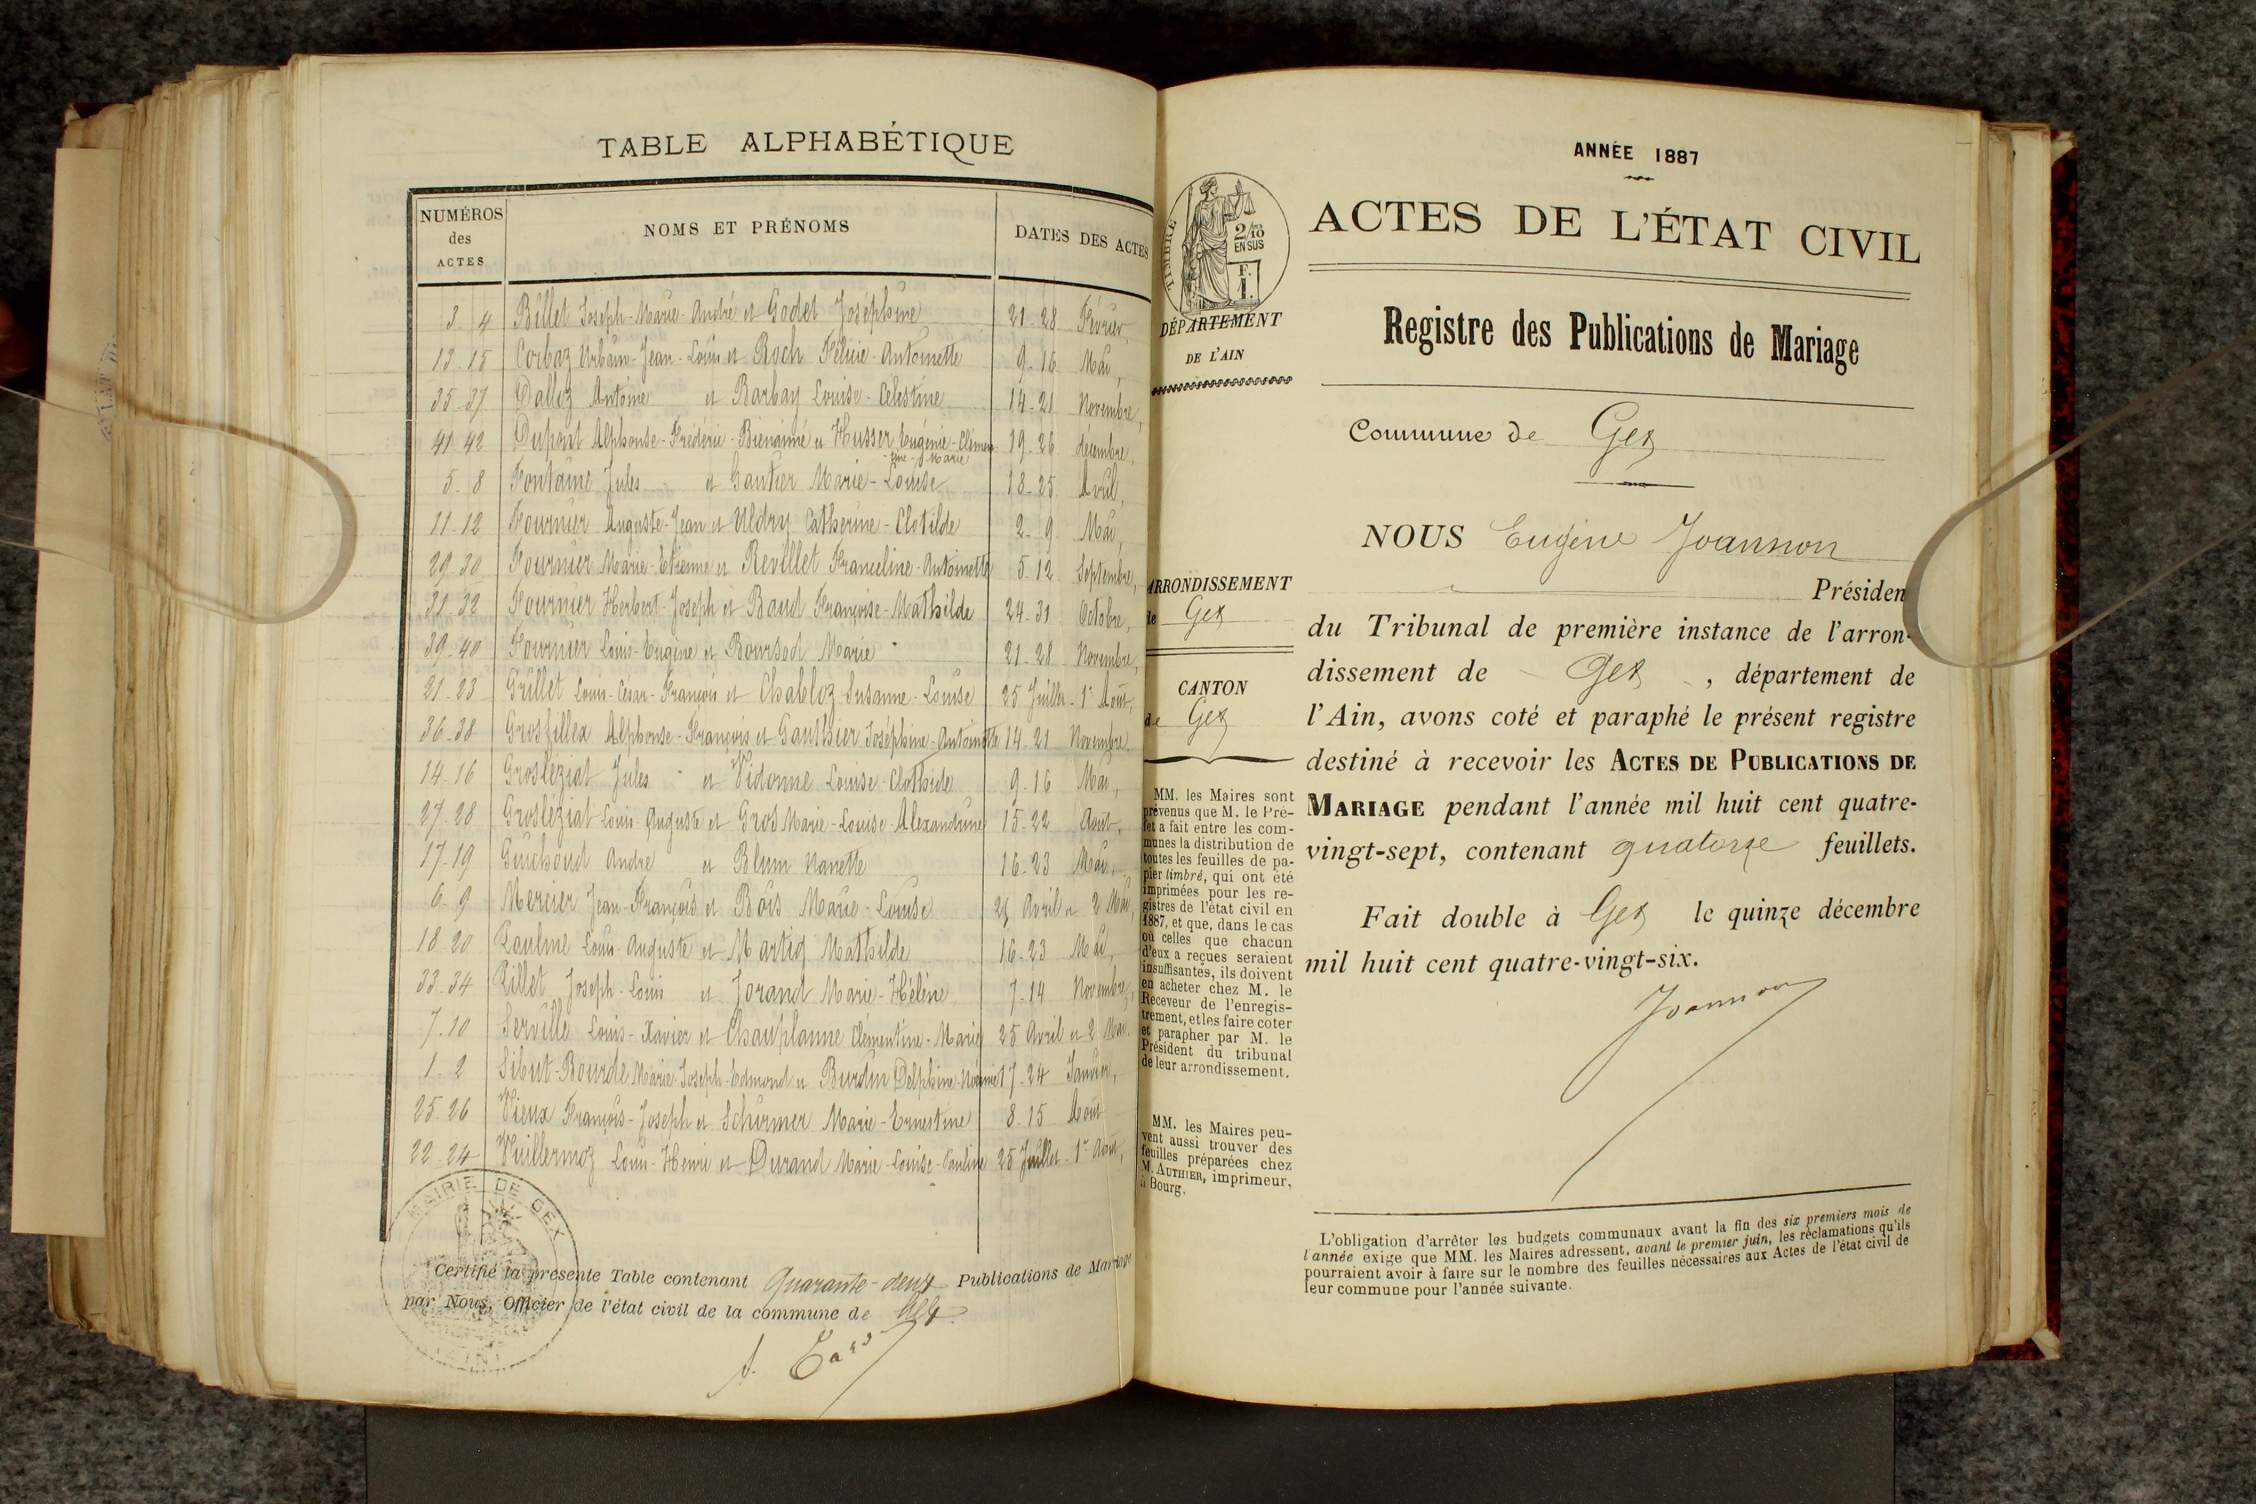 TABLE ALPHABÉTIQUE
NUMÉROS des ACTES
NOMS ET PRÉNOMS
DATES DES ACTES
3 - 4 Billet Joseph-Marie-André et Godet Joséphine 21-28 Février,
13-15 Corbaz Urbain-Jean-Louis et Roch Félicie-Antoinette 9-16 Mai,
35-37 Dalloz Antoine et Barbay Louise-Célestine 14-21 Novembre,
41-42 Dupont Alphonse-Frédéric-Bienaimé et Husser Eugénie-Clémen- 19-26 décembre,
-tine-Marie
5-8 Fontaine Jules et Gautier Marie-Louise 18-25 Avril,
11-12 Fournier Auguste-Jean et Uldry Catherine-Clotilde 2-9 Mai,
29-30 Fournier Marie-Etienne et Revillet Franceline-Antoinette 5-12 Septembre,
31-32 Fournier Herbert-Joseph et Baud Françoise-Mathilde 24-31 Octobre,
39-40 Fournier Louis-Eugène et Boursod Marie 21-28 Novembre,
21-23 Grillet Louis-César-François et Chabloz Susanne-Louise 25 Juillet-1er Août,
36-38 Grosfillex Alphonse-François et Gauthier Joséphine-Antoinette 14-21 Novembre.
14-16 Grosléziat Jules et Vidonne Louise-Clothide 9-16 Mai,
27-28 Grosléziat Louis-Auguste et Gros Marie-Louise-Alexandrine 15-22 Août,
17-19 Guichoud André et Blum Nanette 16-23 Mai,
6-9 Mercier Jean-François et Bois Marie-Louise 25 Avril et 2 Mai,
18-20 Pauline Louis-Auguste et Martig Mathilde 16-23 Mai,
33-34 Pillet Joseph-Louis et Jorand Marie-Hélène 7-14 Novembre,
7-10 Serville Louis-Xavier et Chauplanne Clémentine-Marie 25 Avril et 2 Mai.
1-2 Sibut-Bourde Marie-Joseph-Edmond et Burdin Delphine-Noémie 17-24 Janvier,
25-26 Vieux François-Joseph et Schirmer Marie-Ernestine 8-15 Août
22-24 Vuillermoz Louis-Henri et Durand Marie-Louise-Pauline 25 Juillet-1er Août,
MAIRIE DE GEX
(AIN)
Certifié la présente Table contenant Quarante-deux Publications de Mariage
par Nous, Officier de l'état civil de la commune de Gex.
TIMBRE
2/10 EN SUS
DÉPARTEMENT
DE L'AIN
ARRONDISSEMENT
de Gex
CANTON
de Gex
MM. les Maires sont
prévenus que M. le Pré-
fet a fait entre les com-
munes la distribution de
toutes les feuilles de pa-
pier timbré, qui ont été
imprimées pour les re-
gistres de l'état civil en
1887, et que, dans le cas
où celles que chacun
d'eux a reçues seraient
insuffisantes, ils doivent
en acheter chez M. le
Receveur de l'enregis-
trement, et les faire coter
et parapher par M. le
Président du tribunal
de leur arrondissement.
MM. les Maires peu-
vent aussi trouver des
feuilles préparées chez
M. AUTHIER, imprimeur,
à Bourg.
ANNÉE 1887
ACTES DE L'ÉTAT CIVIL
Registre des Publications de Mariage
Commune de Gex
NOUS Eugène Joannon
Présiden
du Tribunal de première instance de l'arron-
dissement de Gex, département de
l'Ain, avons coté et paraphé le présent registre
destiné à recevoir les ACTES DE PUBLICATIONS DE
MARIAGE pendant l'année mil huit cent quatre-
vingt-sept, contenant quatorze feuillets.
Fait double à Gex le quinze décembre
mil huit cent quatre-vingt-six.
Joannon
L'obligation d'arrêter les budgets communaux avant la fin des six premiers mois de
l'année exige que MM. les Maires adressent, avant le premier juin, les réclamations qu'ils
pourraient avoir à faire sur le nombre des feuilles nécessaires aux Actes de l'état civil de
leur commune pour l'année suivante.